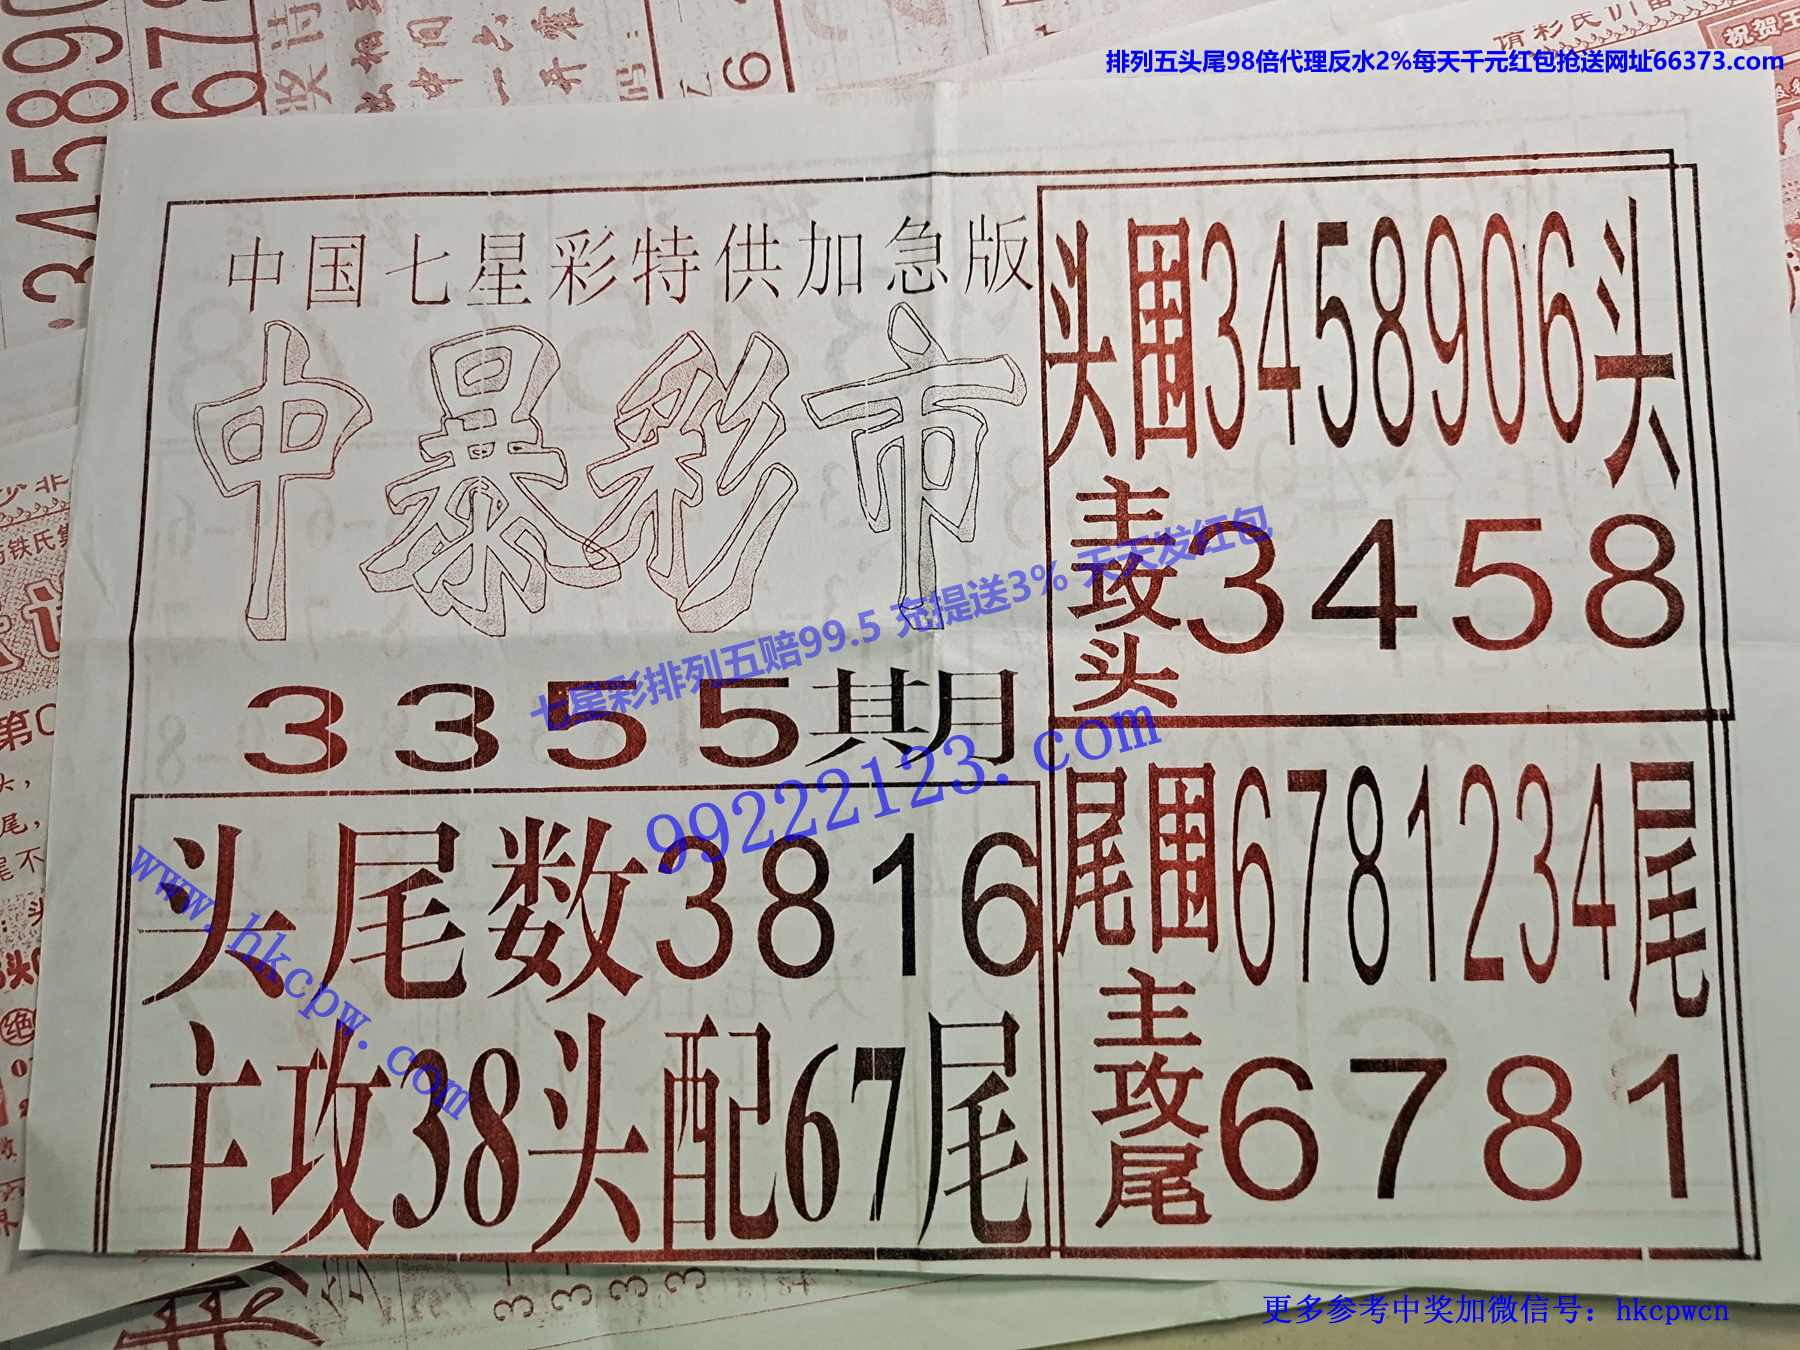 排列五头尾98倍代理反水2%每天千元红包抢送网址66373.com
中国七星彩特供加急版
中暴彩市
3355期
头尾数3816
主攻38头配67尾
头围3458906头
主攻头3458
尾围6781234尾
主攻尾6781
七星彩排列五赔99.5 充提送3% 天天发红包
99222123.com
www.hkcpw.com
更多参考中奖加微信号：hkcpwcn